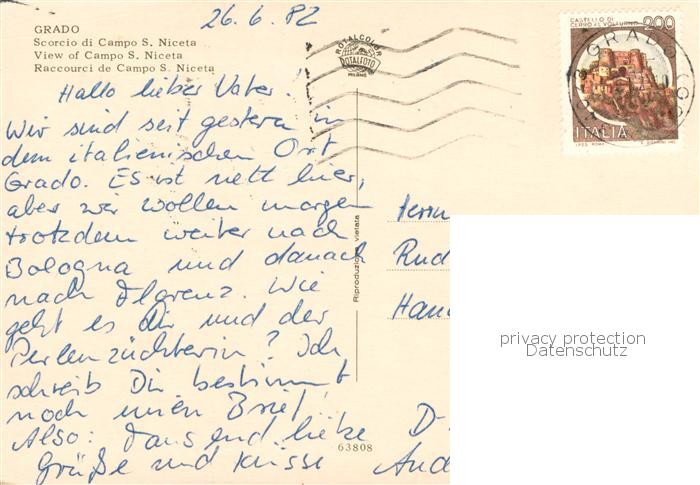 GRADO
Scorcio di Campo S. Niceta
View of Campo S. Niceta
Raccourci de Campo S. Niceta
26.6.82
ROTALCOLOR
ROTALFOTO
MILANO
CASTELLO DI
CERRO AL VOLTURNO 200
ITALIA
GRADO
Hallo lieber Vater!
Wir sind seit gestern in
dem italienischen Ort
Grado. Es ist nett hier,
aber wir wollen morgen
trotzdem weiter nach
Bologna und danach
nach Florenz. Wie
geht es Dir und der
Perlenzüchterin? Ich
schreib Dir bestimmt
noch einen Brief!
Also: Tausend liebe
Grüße und Küsse
D
And
Riproduzione vietata
63808
Herrn
Rud
Han
privacy protection
Datenschutz